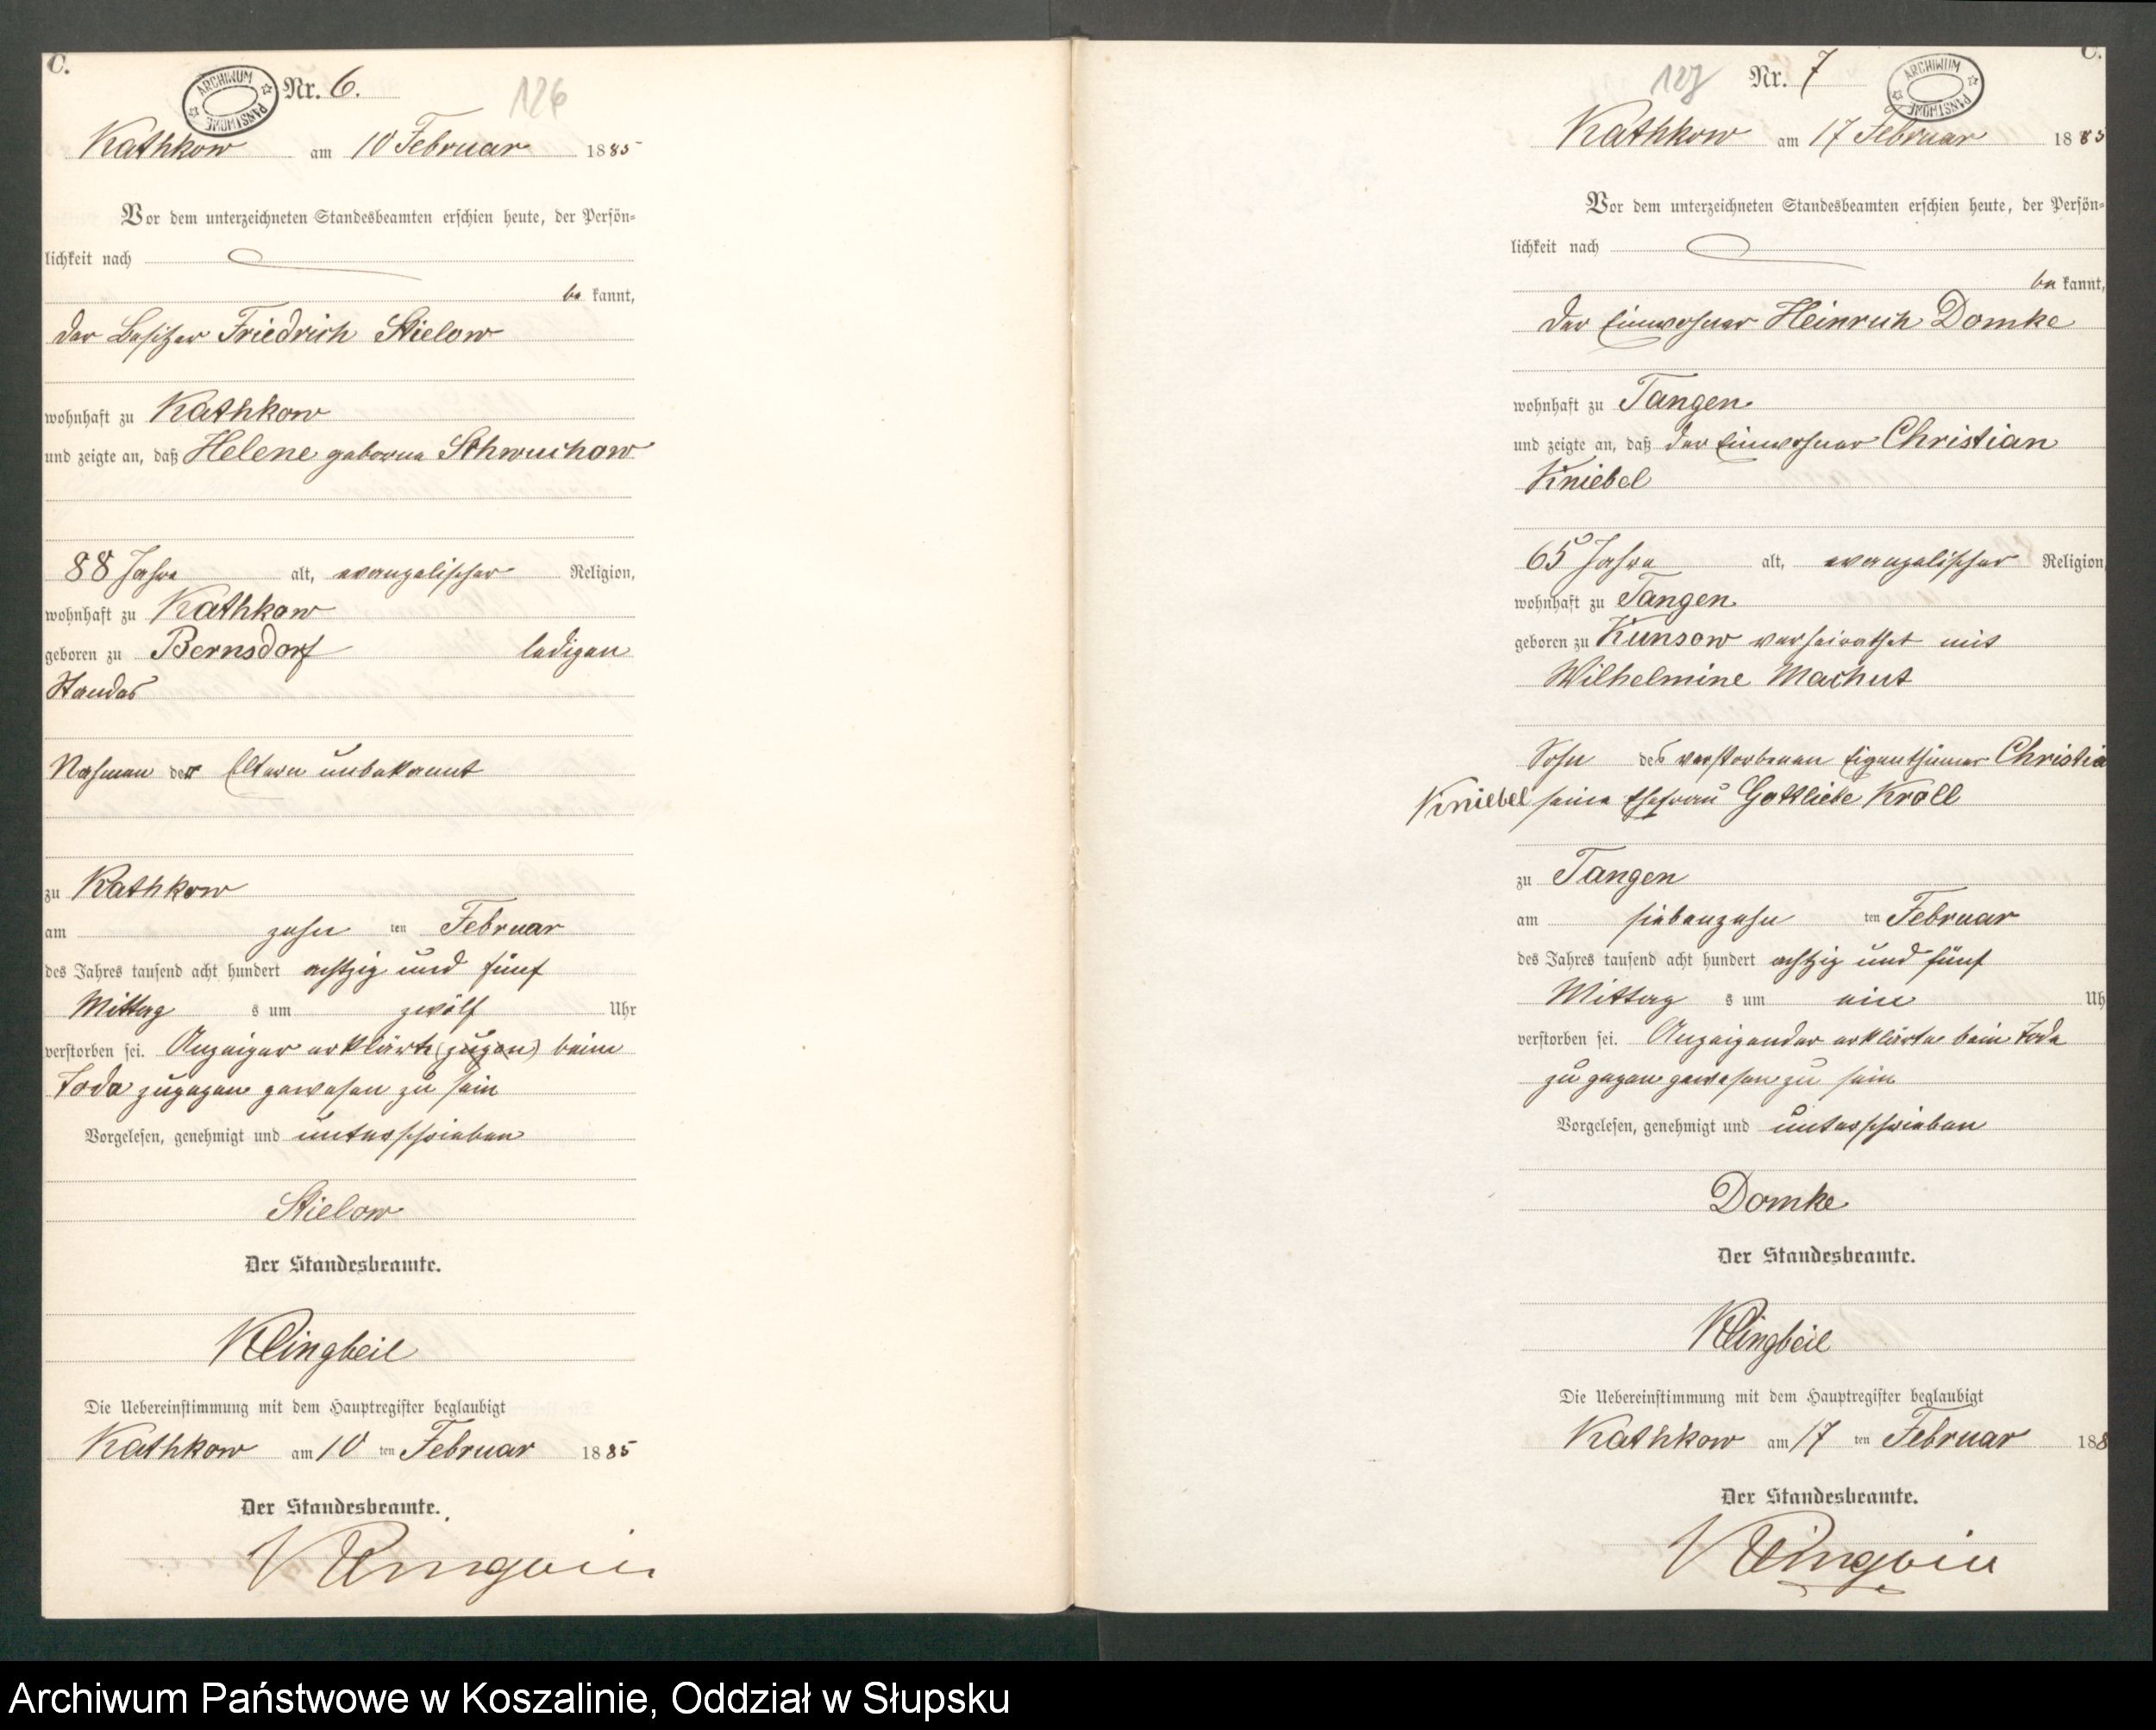 C.
Nr. 6.
126
ARCHIWUM PAŃSTWOWE
Kathkow am 10 Februar 1885
Vor dem unterzeichneten Standesbeamten erschien heute, der Persön-
lichkeit nach
be kannt,
der Besitzer Friedrich Stielow
wohnhaft zu Kathkow
und zeigte an, daß Helene geborne Schwuchow
88 Jahre alt, evangelischer Religion,
wohnhaft zu Kathkow
geboren zu Bernsdorf ledigen
Standes
Nahmen der Eltern unbekannt
zu Kathkow
am zehn ten Februar
des Jahres tausend acht hundert achtzig und fünf
Mittag s um zwölf Uhr
verstorben sei. Anzeiger erklärte (zugen) beim
Tode zugegen gewesen zu sein
Vorgelesen, genehmigt und unterschrieben
Stielow
Der Standesbeamte.
Klingbeil
Die Uebereinstimmung mit dem Hauptregister beglaubigt
Kathkow am 10 ten Februar 1885
Der Standesbeamte.
Klingbeil
C.
127
Nr. 7
ARCHIWUM PAŃSTWOWE
Kathkow am 17 Februar 1885
Vor dem unterzeichneten Standesbeamten erschien heute, der Persön-
lichkeit nach
be kannt,
der Einwohner Heinrich Domke
wohnhaft zu Tangen
und zeigte an, daß der Einwohner Christian
Kniebel
65 Jahre alt, evangelischer Religion,
wohnhaft zu Tangen
geboren zu Kunsow verheirathet mit
Wilhelmine Machut
Sohn des verstorbenen Eigenthümer Christia
Kniebel seine Ehefrau Gottliebe Kroll
zu Tangen
am siebenzehn ten Februar
des Jahres tausend acht hundert achtzig und fünf
Mittag s um ein Uh
verstorben sei. Anzeigender erklärte beim Tode
zu gegen gewesen zu sein
Vorgelesen, genehmigt und unterschrieben
Domke
Der Standesbeamte.
Klingbeil
Die Uebereinstimmung mit dem Hauptregister beglaubigt
Kathkow am 17 ten Februar 188
Der Standesbeamte.
Klingbeil
Archiwum Państwowe w Koszalinie, Oddział w Słupsku